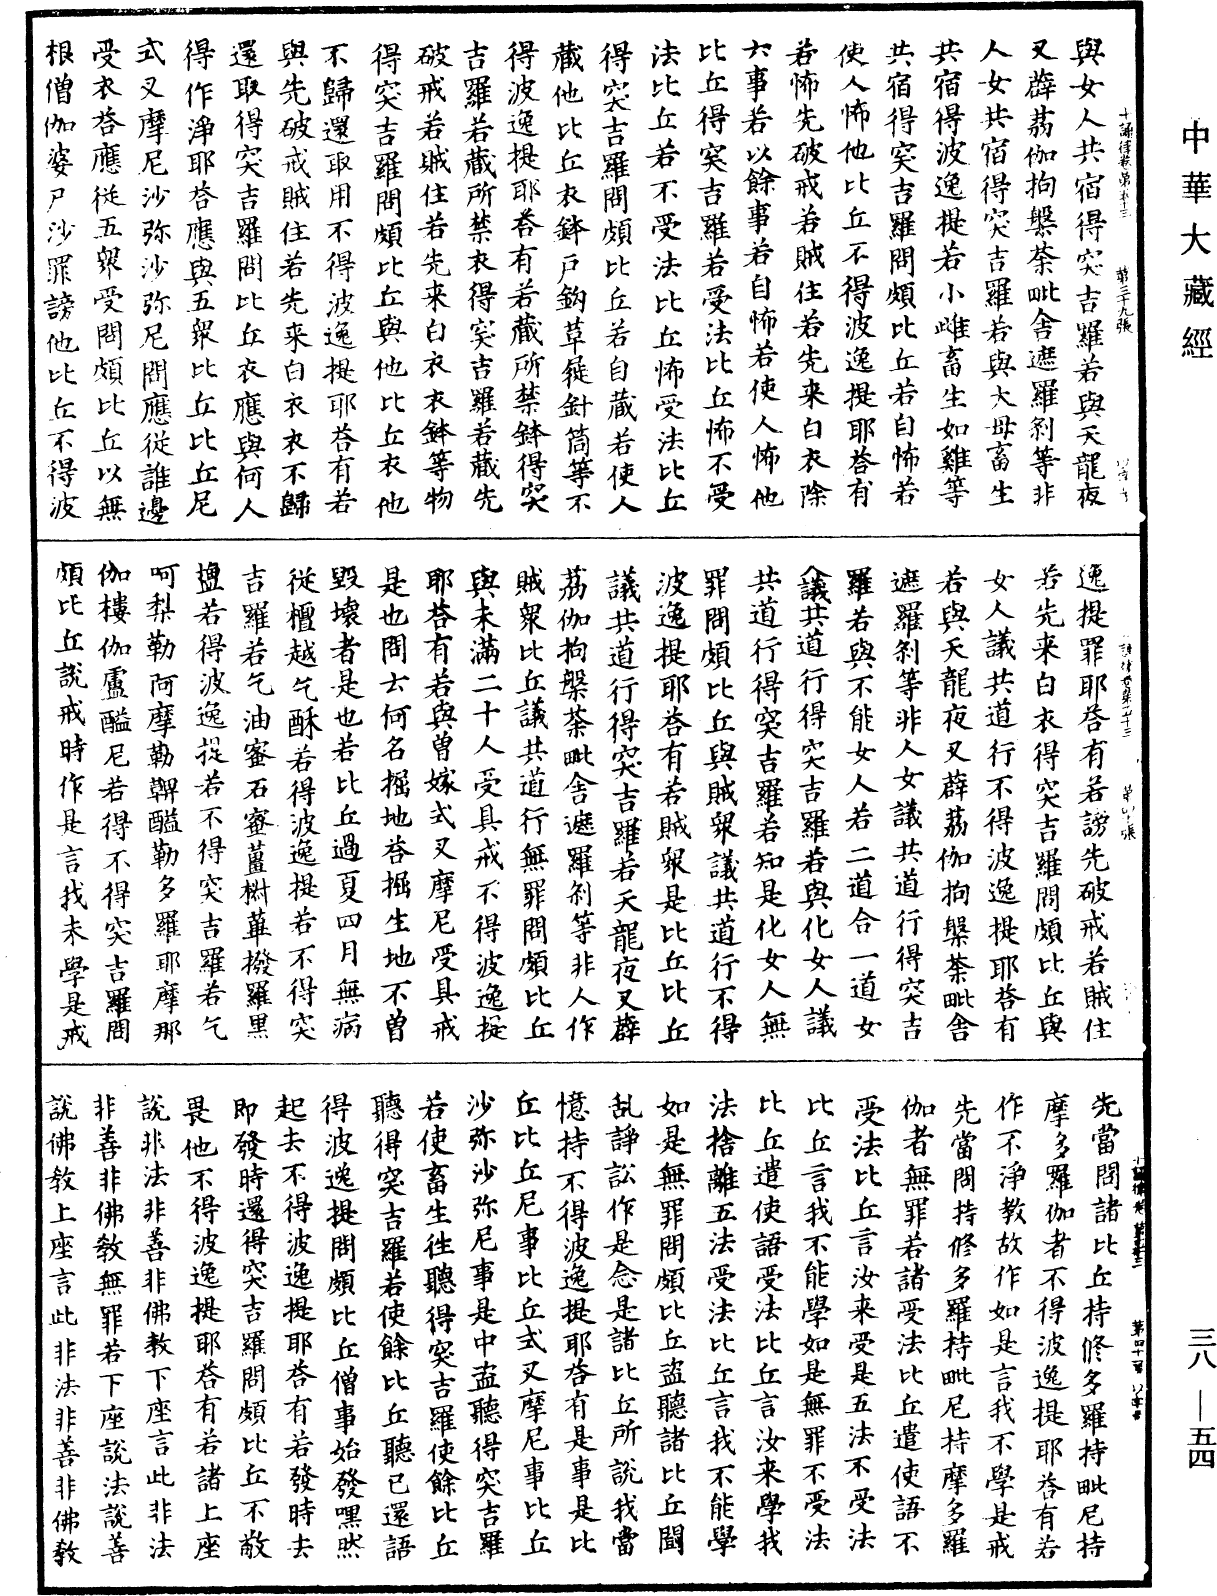 中華大藏經
與女人共宿得突吉羅若與天龍夜
叉薜荔伽拘槃荼毗舍遮羅刹等非
人女共宿得突吉羅若與大母畜生
共宿得波逸提若小雌畜生如雞等
共宿得突吉羅問頗比丘若自怖若
使人怖他比丘不得波逸提耶荅有
若怖先破戒若賊住若先来白衣除
六事若以餘事若自怖若使人怖他
比丘得突吉羅若受法比丘怖不受
法比丘若不受法比丘怖受法比丘
得突吉羅問頗比丘若自藏若使人
藏他比丘衣鉢戸鈎草屣針筒等不
得波逸提耶荅有若藏所禁鉢得突
吉羅若藏所禁衣得突吉羅若藏先
破戒若賊住若先来白衣衣鉢等物
得突吉羅問頗比丘與他比丘衣他
不歸還取用不得波逸提耶荅有若
與先破戒賊住若先来白衣衣不歸
還取得突吉羅問比丘衣應與何人
得作淨耶荅應與五衆比丘比丘尼
式叉摩尼沙弥沙弥尼問應從誰邊
受衣荅應從五衆受問頗比丘以無
根僧伽婆尸沙罪謗他比丘不得波
逸提罪耶荅有若謗先破戒若賊住
若先来白衣得突吉羅問頗比丘與
女人議共道行不得波逸提耶荅有
若與天龍夜叉薜荔伽拘槃荼毗舍
遮羅刹等非人女議共道行得突吉
羅若與不能女人若二道合一道女
人議共道行得突吉羅若與化女人議
共道行得突吉羅若知是化女人無
罪問頗比丘與賊衆議共道行不得
波逸提耶荅有若賊衆是比丘比丘
議共道行得突吉羅若天龍夜叉薜
荔伽拘槃荼毗舍遮羅刹等非人作
賊衆比丘議共道行無罪問頗比丘
與未滿二十人受具戒不得波逸提
耶荅有若與曽嫁式叉摩尼受具戒
是也問云何名掘地荅掘生地不曽
毀壞者是也若比丘過夏四月無病
從檀越乞酥若得波逸提若不得突
吉羅若乞油蜜石蜜薑樹蓽撥羅黒
鹽若得波逸提若不得突吉羅若乞
呵梨勒阿摩勒鞞醯勒多羅耶摩那
伽樓伽盧醯尼若得不得突吉羅問
頗比丘說戒時作是言我未學是戒
先當問諸比丘持修多羅持毗尼持
摩多羅伽者不得波逸提耶荅有若
作不淨教故作如是言我不學是戒
先當問持修多羅持毗尼持摩多羅
伽者無罪若諸受法比丘遣使語不
受法比丘言汝来受是五法不受法
比丘言我不能學如是無罪不受法
比丘遣使語受法比丘言汝来學我
法捨離五法受法比丘言我不能學
如是無罪問頗比丘盗聽諸比丘鬪
亂諍訟作是念是諸比丘所說我當
憶持不得波逸提耶荅有是事是比
丘比丘尼事比丘式叉摩尼事比丘
沙弥沙弥尼事是中盗聽得突吉羅
若使畜生徃聽得突吉羅使餘比丘
聽得突吉羅若使餘比丘聽已還語
得波逸提問頗比丘僧事始發嘿然
起去不得波逸提耶荅有若發時去
即發時還得突吉羅問頗比丘不敬
畏他不得波逸提耶荅有若諸上座
說非法非善非佛教下座言此非法
非善非佛教無罪若下座說法說善
說佛教上座言此非法非善非佛教
三八—五四